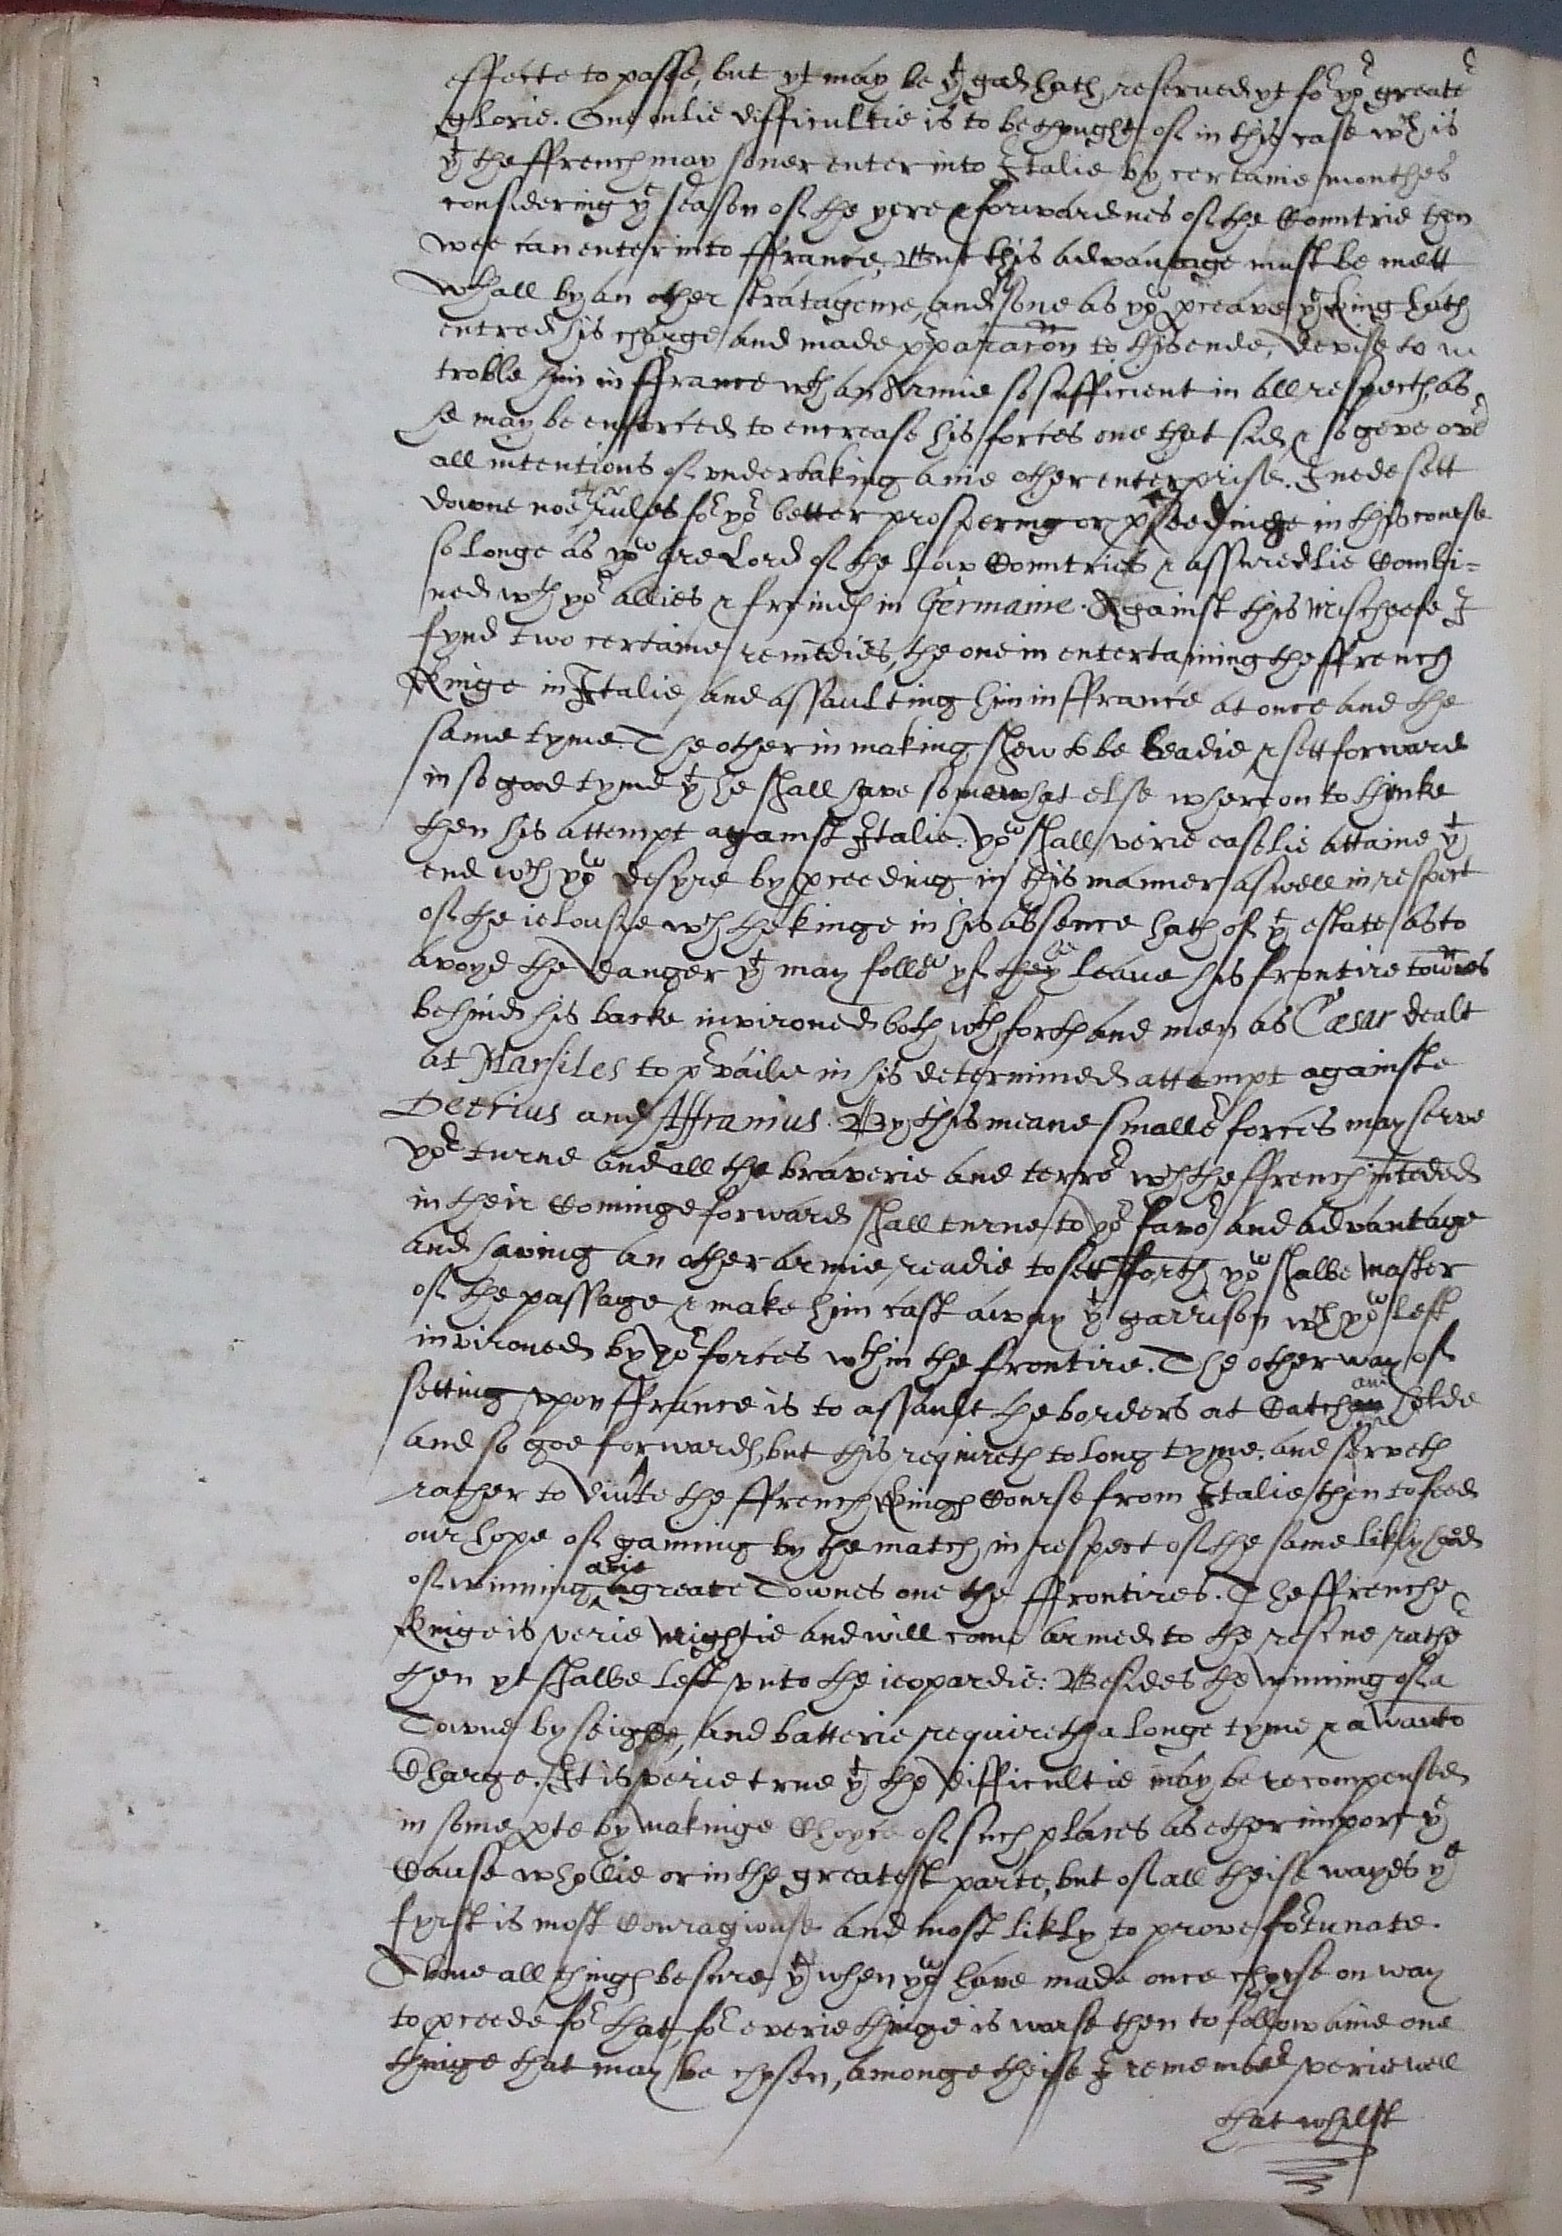 effecte to passe, but yt may be yt god hath reserved yt for yor greate
glorie. One onlie difficultie is to be thought of in this case wch is
yt the ffrench may soner enter into Italie by certaine monthes
considering ye season of the yere & forwardnes of the Countrie then
wee can enter into ffrance, But this advantage must be mett
wthall by an other stratageme, and sone as you pceave ye King hath
entred his charge and made pparacon to this ende, devise to
troble him in ffrance wth an Armie so sufficient in all respects, as
he may be enforced to encrease his forces one that side & so geve over
all intentions of undertaking anie other enterprise. I nede sett
downe noe rules for yor better prospering or pceedinge in this course
so longe as you are Lord of the Low Countries & assuredlie Combi=
ned wth yor allies & freinds in Germaine. Against this Mischeefe I
fynd two certaine remedies, the one in entertayning the ffrench
Kinge in Italie, and assaulting him in ffrance at once and the
same tyme. The other in making shew to be Readie & sett forward
in so good tyme yt he shall have somewhat else whereon to thinke
then his attempt against Italie. you shall verie easelie attaine yt
end wch you desyre by pceeding in this manner aswell in respect
of the ielousie wch the kinge in his absence hath of yt estate as to
avoyd the danger yt may follow yf he leave his frontire townes
behind his backe invironed both wth forts and men as Cæsar dealt
at Marsiles to pvaile in his determined attempt againste
Petrius and Affranius. By this meane smaller forces may serve
yor turne and all the braverie and terror wch the ffrench inteded
in their Cominge forward shall turne to yor favor and advantage
and having an other armie readie to sett fforth you shalbe Master
of the passage & make him cast away yt garrison wch you left
invironed by yor forces wthin the frontire. The other way of
setting upon ffrance is to assault the borders at Catch and holde
and so goe forwards, but this requireth to long tyme, and serveth
rather to divte the ffrench Kings Course from Italie then to feed
our hope of gaining by the match in respect of the same liklyhood
of winning anie greate Townes one the ffrontires. The ffrenche
Kinge is verie Mightie and will come armed to the rescue rather
then yt shalbe left unto the ieopardie: Besides the winning of a
Towne by seighe, and batterie requireth a longe tyme & a
Charge. It is verie true yt the difficultie may be recompensed
in some pte by makinge Choyce of such places as ether import ye
Cause whollie or in the greatest parte, but of all theise wayes ye
fyrst is most Couragiouse and most likly to prove fortunate.
Above all things be sure yt when you have made once choyse on way
to pceede for that, for everie thinge is worse then to follow anie one
thinge that may be chosen, amonge theise I remember verie well
that whilst